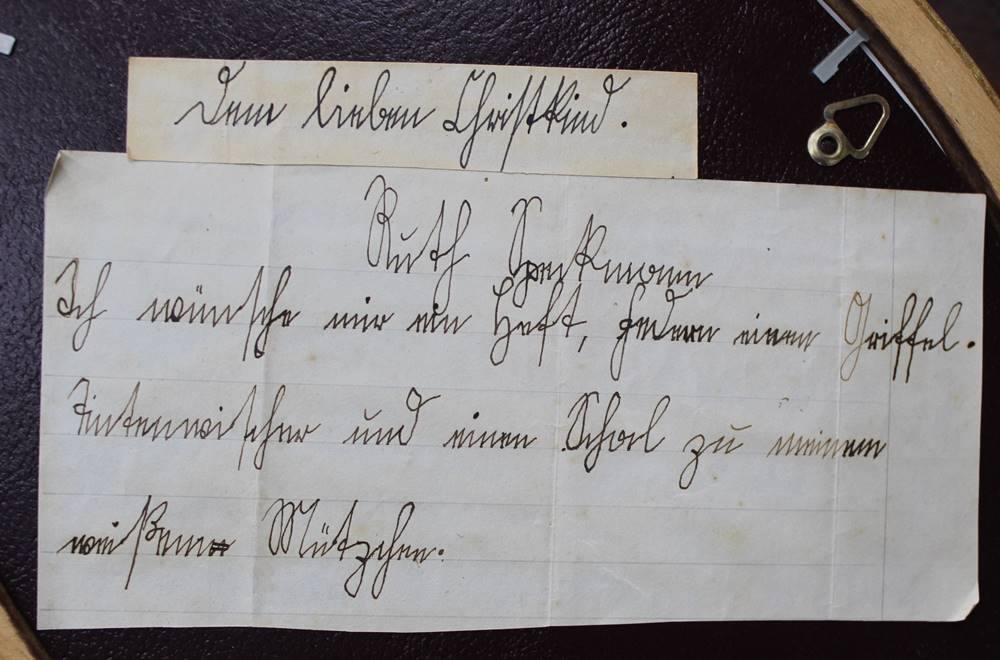 Dem lieben Christkind.
Ruth Speckmann
Ich wünsche mir ein Heft, Federn einen Griffel.
Tintenwischer und einen Schal zu meinem
weißem Mützchen.